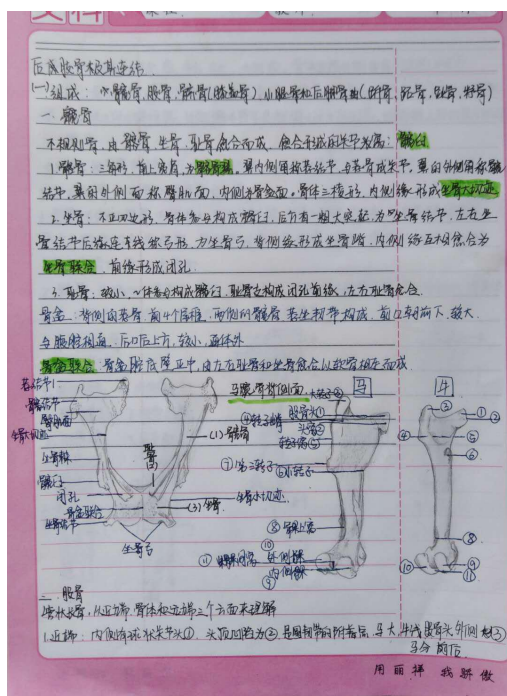 后肢股骨极其连结
(一)组成: 髋骨、股骨、髌骨(膝盖骨) 小腿骨和后脚骨由(跗骨、跖骨、趾骨、籽骨)
一、髋骨
不规则骨,由髂骨、坐骨、耻骨愈合而成,愈合形成的关节为窝:髋臼
1.髂骨:三角形,前上宽骨,为髂骨翼,翼内侧角称荐结节,与荐骨成关节,翼的外侧角称髋
结节,翼的外侧面称臀肌面,内侧为骨盆面。骨体三棱形,内侧缘形成坐骨大切迹
2.坐骨:不正四边形,骨体参与构成髋臼,后方有一粗大突起,为坐骨结节,左右坐
骨结节后缘连直线被弓形,为坐骨弓,背侧缘形成坐骨棘,内侧缘互相愈合为
坐骨联合,前缘形成闭孔
3.耻骨:较小,体参与构成髋臼,耻骨支构成闭孔前缘,左右耻骨愈合
骨盆:背侧的荐骨 前4个尾椎,两侧的髂骨 荐坐韧带构成,前口朝前下,较大
与腹腔相通,后口后上方,较小,通体外
骨盆联合:骨盆腔底壁正中,由左右耻骨和坐骨愈合以软骨相连而成
荐结节
髋结节
臀肌面
坐骨大切迹
坐骨棘
髋臼
闭孔
骨盆联合
坐骨结节
坐骨弓
耻骨
(1)髂骨
(3)坐骨
坐骨小切迹
马腿骨背侧面
马
牛
大转子
④转子嵴
股骨头①
头窝②
转子窝⑤
⑦第三转子
⑥小转子
⑧
⑪
⑩
外侧髁
内侧髁
⑨
②
①
③
④
⑤
⑥
⑧
⑩
⑨
⑪
二、股骨
管状长骨,从近端、骨体和远端三个方面来理解
1.近端:内侧有球状关节头①,头顶凹陷为②,是圆韧带的附着层,马大、牛浅 股骨头外侧
马分前后
用丽择 我骄傲